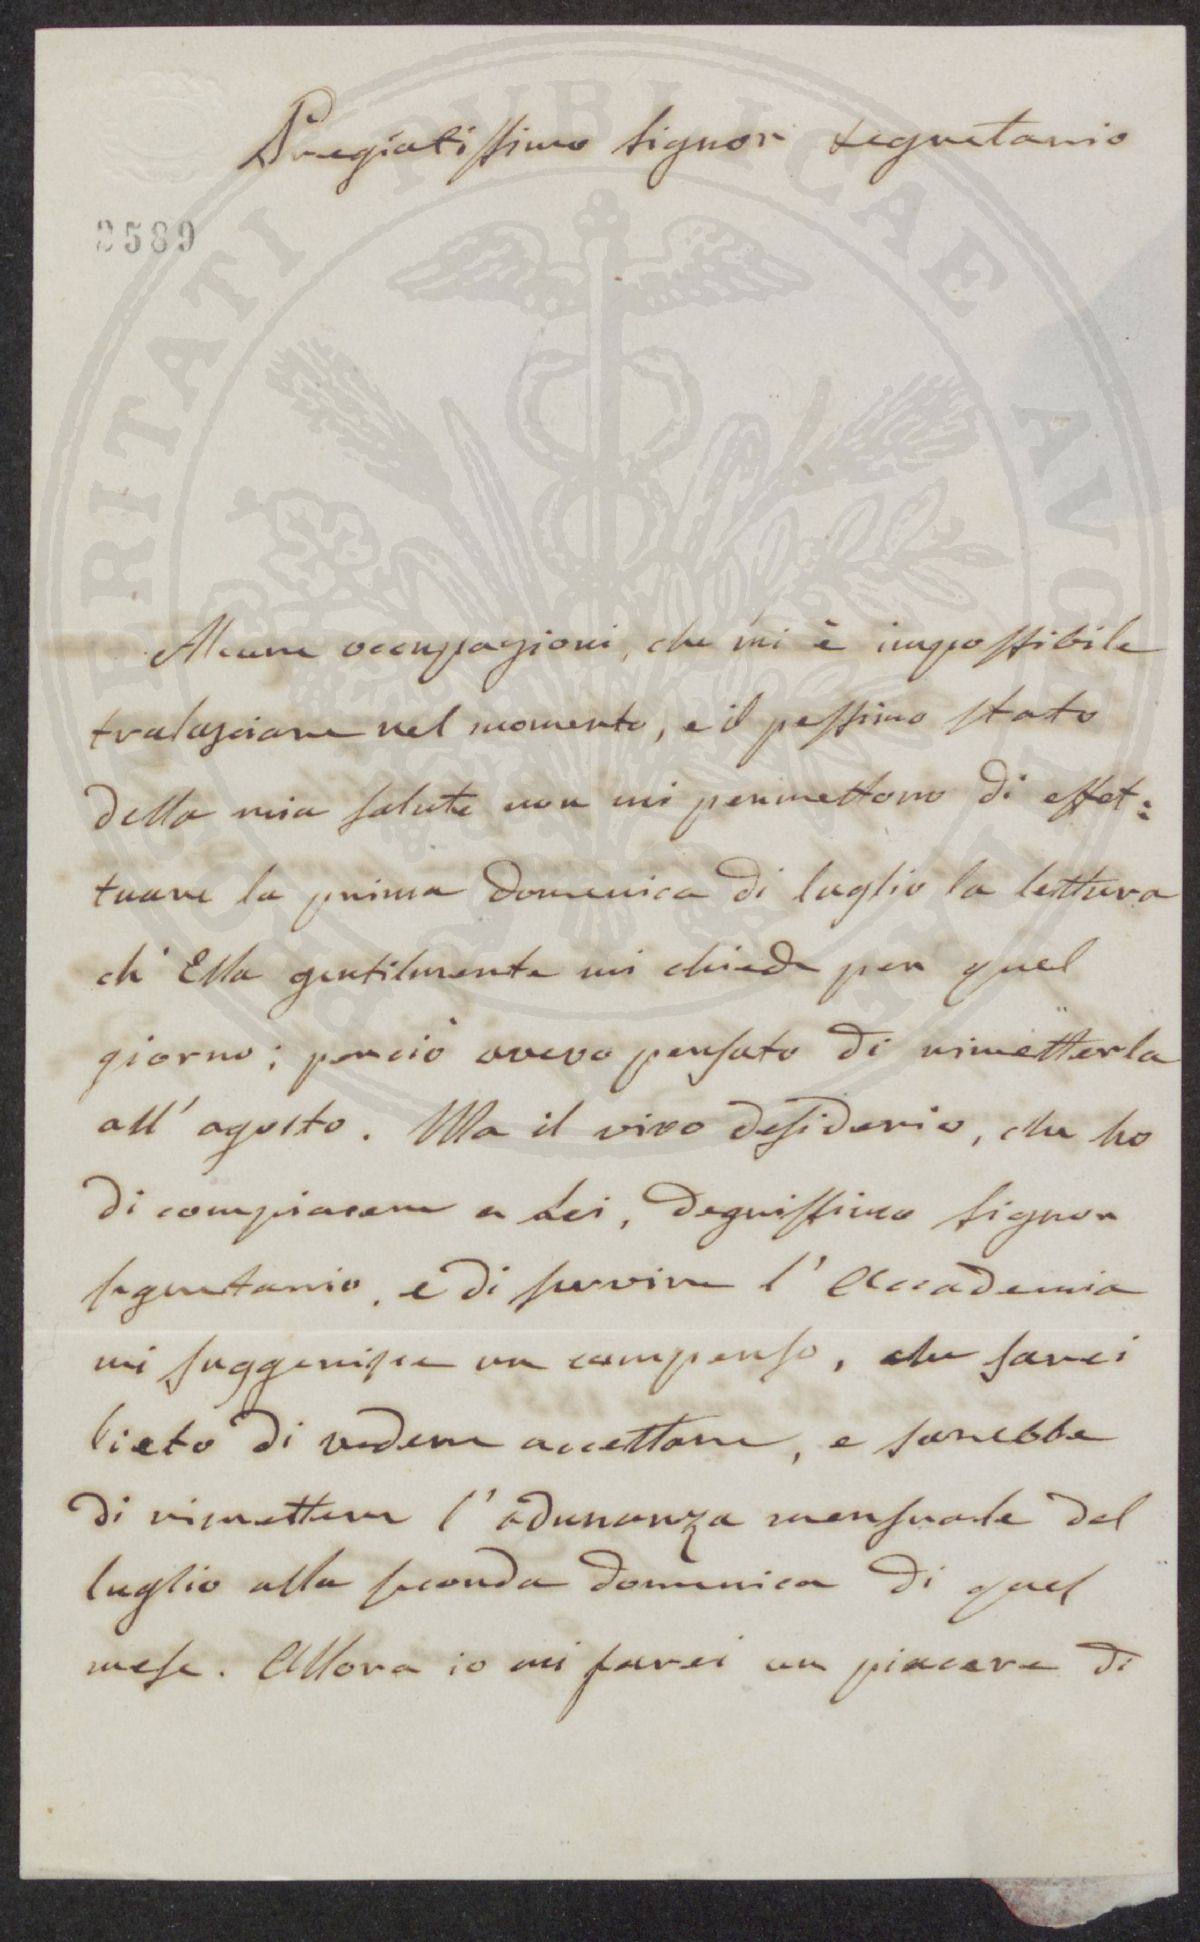 Pregiatissimo Signor Segretario
2589
Alcune occupazioni, che mi è impossibile
tralasciare nel momento, e il pessimo stato
della mia salute non mi permettono di effet:
tuare la prima Domenica di luglio la lettura
ch' Ella gentilmente mi chiede per quel
giorno; perciò avevo pensato di rimetterla
all' agosto. Ma il vivo desiderio, che ho
di compiacere a Lei, degnissimo Signor
Segretario, e di servire l' Accademia
mi suggerisce un compenso, che sarei
lieto di vedere accettare, e sarebbe
di rimettere l' adunanza mensuale del
luglio alla seconda domenica di quel
mese. Allora io mi farei un piacere di
PROSPERITATI PUBLICAE AUGENDAE